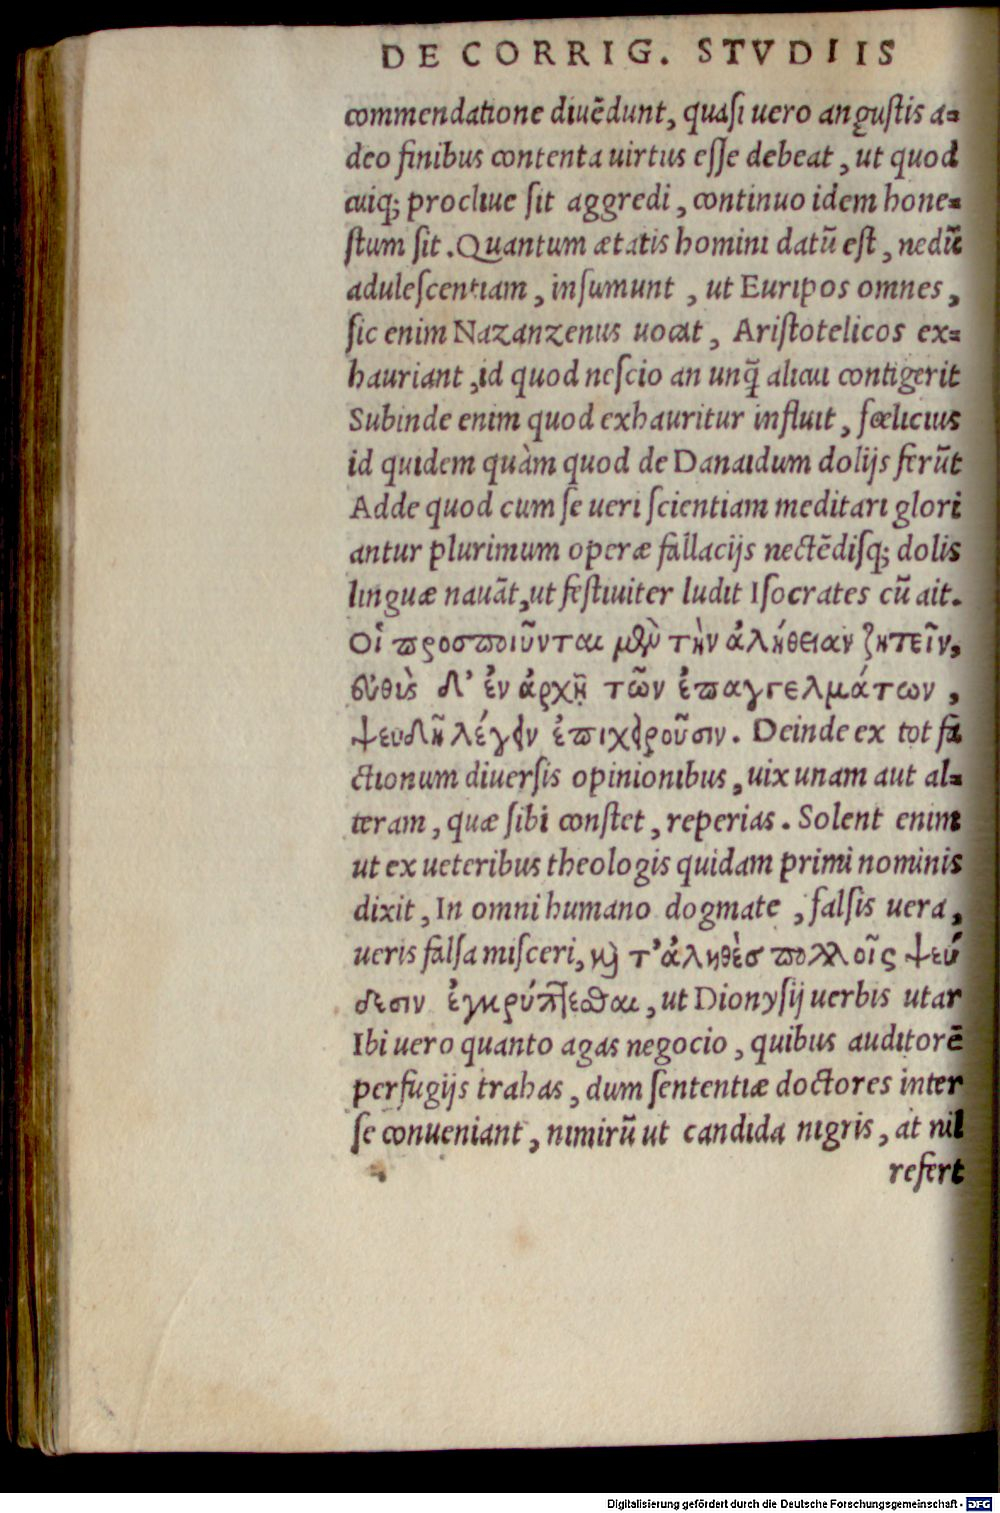 DE CORRIG. STVDIIS
commendatione diuẽdunt, quasi uero angustis a-
deo finibus contenta uirtus esse debeat, ut quod
cuiq; procliue sit aggredi, continuo idem hone-
stum sit. Quantum ætatis homini datũ est, nedũ
adulescentiam, insumunt, ut Euripos omnes,
sic enim Nazanzenus uocat, Aristotelicos ex-
hauriant, id quod nescio an unq̃ alicui contigerit
Subinde enim quod exhauritur influit, fœlicius
id quidem quàm quod de Danaidum dolijs ferũt
Adde quod cum se ueri scientiam meditari glori
antur plurimum operæ fallacijs nectẽdisq; dolis
linguæ nauãt, ut festiuiter ludit Isocrates cũ ait.
Οἱ προσποιοῦνται μὲν τὴν ἀλήθειαν ζητεῖν,
εὐθὺς δ' ἐν ἀρχῇ τῶν ἐπαγγελμάτων,
ψευδῆ λέγειν ἐπιχειροῦσιν. Deinde ex tot fa
ctionum diuersis opinionibus, uix unam aut al-
teram, quæ sibi constet, reperias. Solent enim
ut ex ueteribus theologis quidam primi nominis
dixit, In omni humano dogmate, falsis uera,
ueris falsa misceri, καὶ τ' ἀληθὲς πολλοῖς ψεύ
δεσιν ἐγκρύπτεσθαι, ut Dionysij uerbis utar
Ibi uero quanto agas negocio, quibus auditorẽ
perfugijs trahas, dum sententiæ doctores inter
se conueniant, nimirũ ut candida nigris, at nil
refert
Digitalisierung gefördert durch die Deutsche Forschungsgemeinschaft - DFG